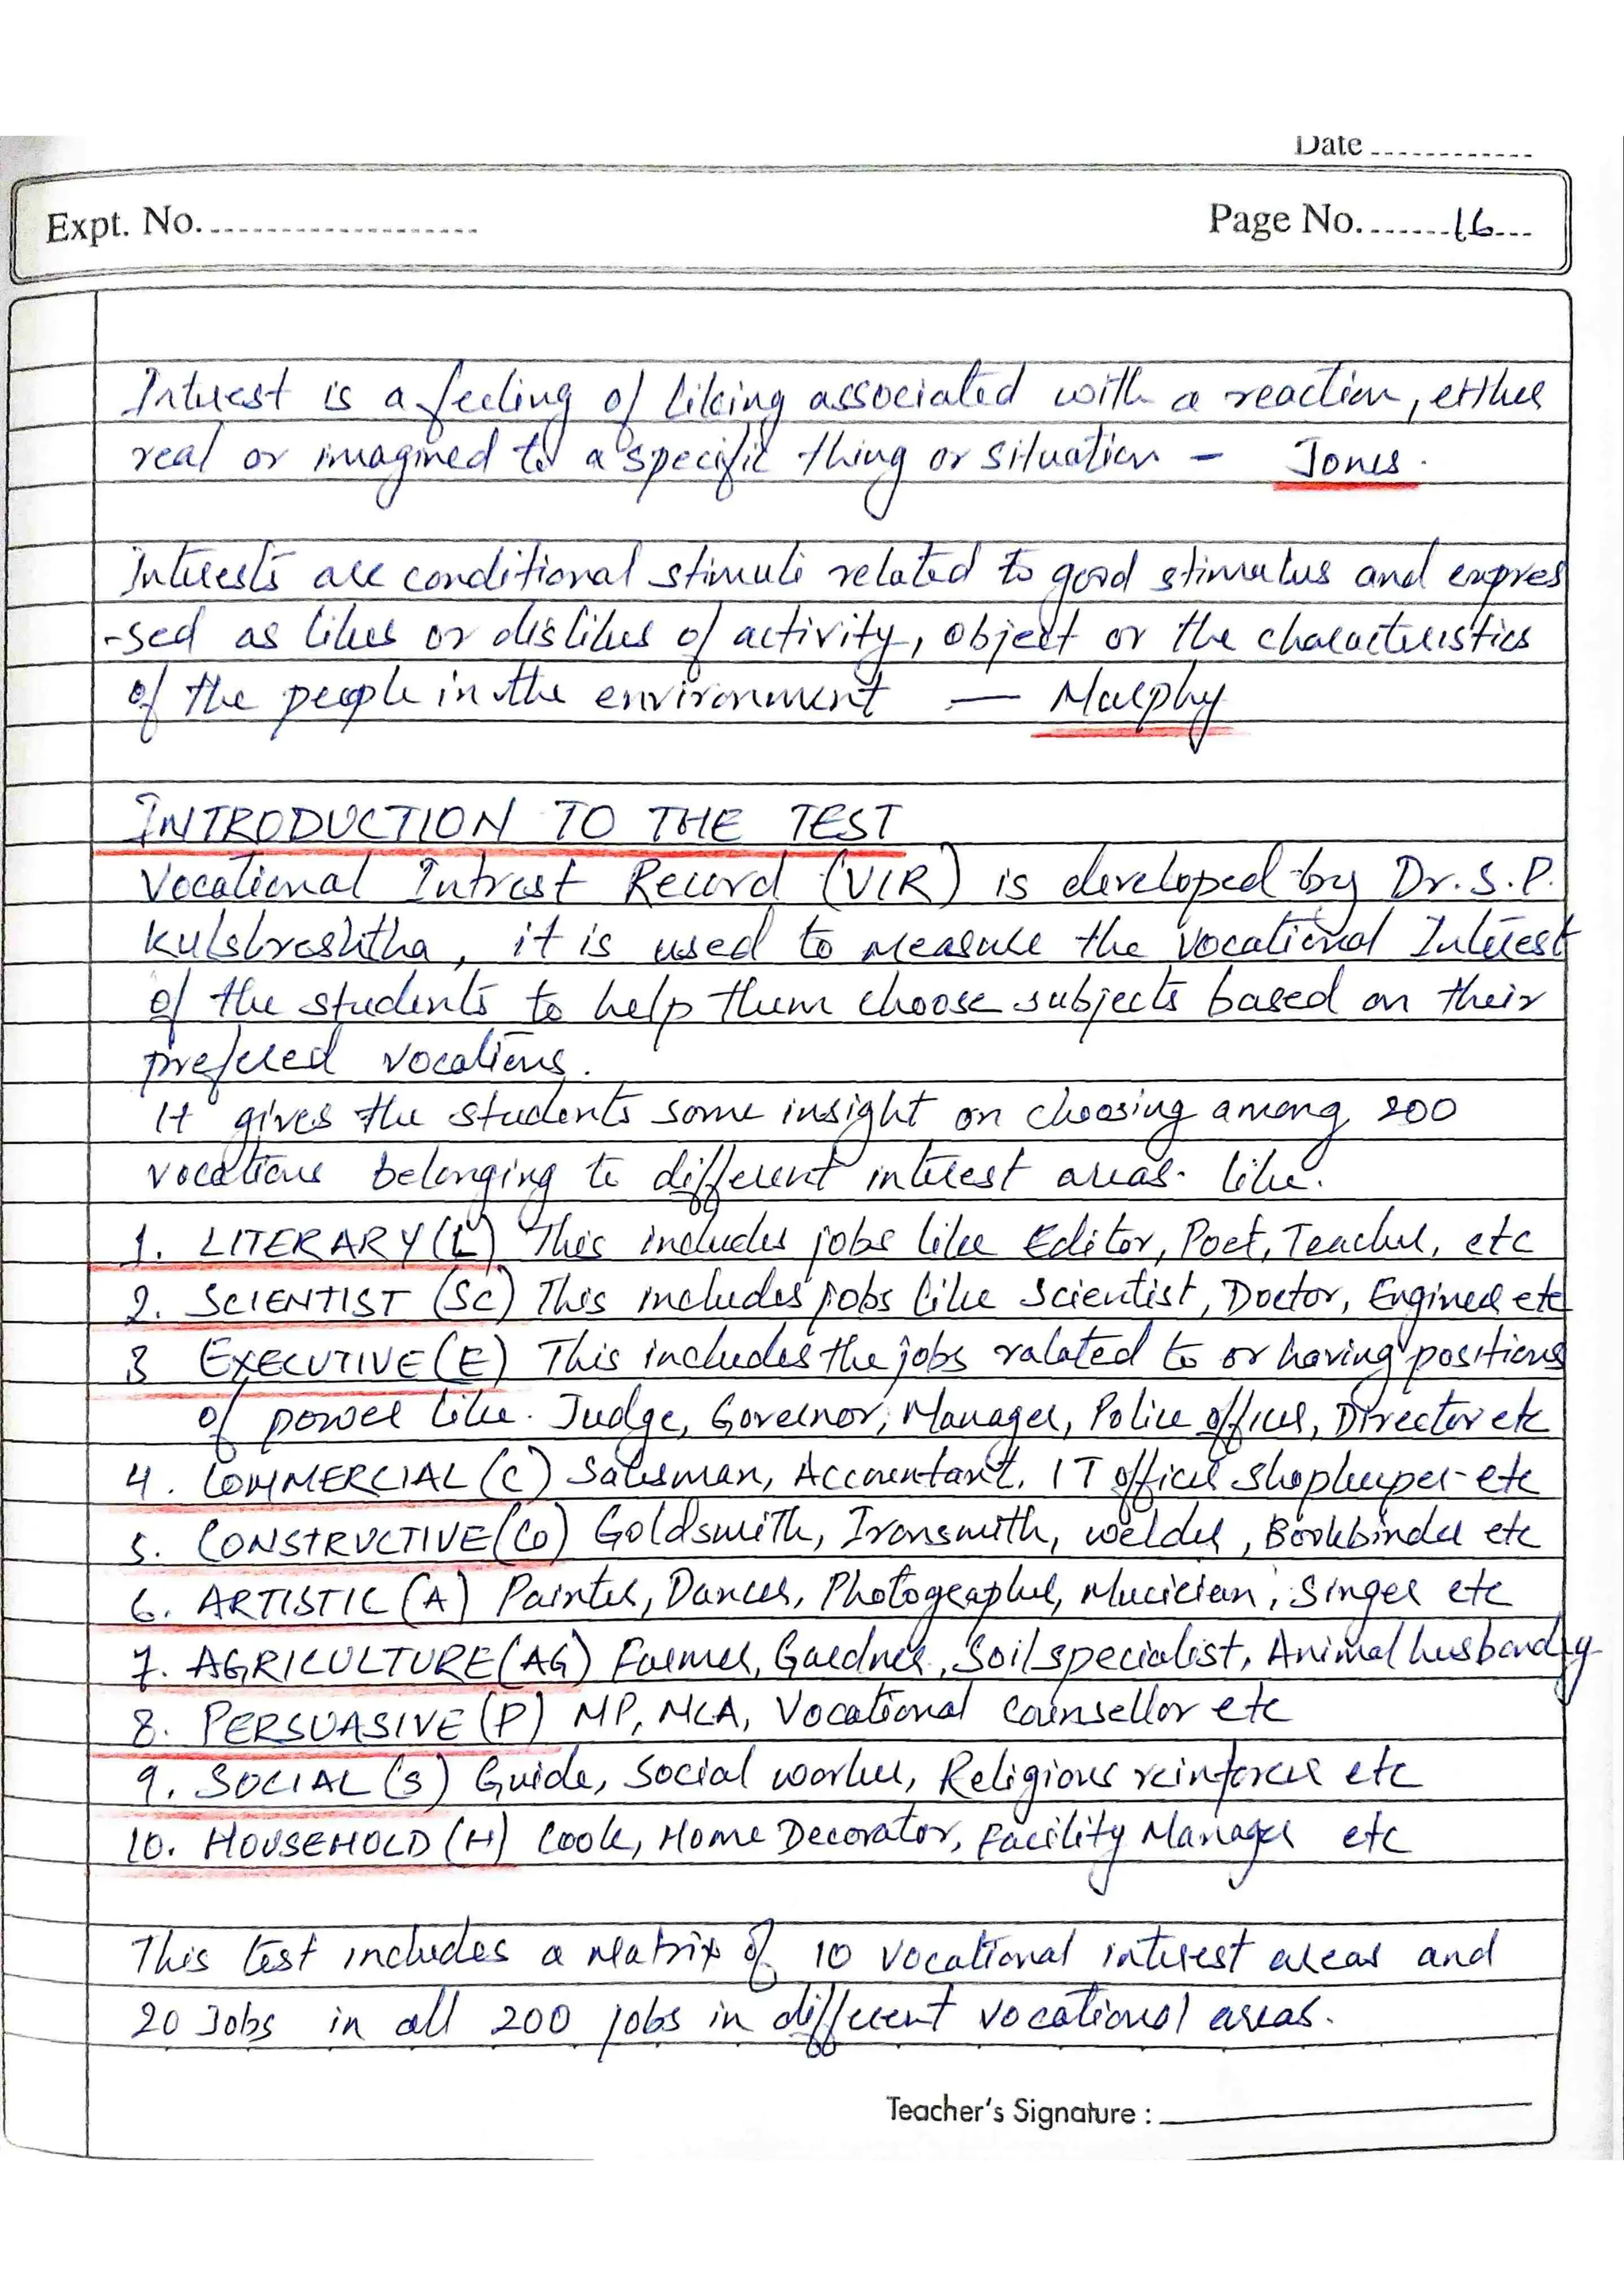 Date
Expt. No.
Page No. 16
Interest is a feeling of liking associated with a reaction, either
real or imagined to a specific thing or situation - Jones.
Interests are conditional stimuli related to good stimulus and expres
-sed as likes or dislikes of activity, object or the characteristics
of the people in the environment — Murphy
INTRODUCTION TO THE TEST
Vocational Intrest Record (VIR) is developed by Dr. S. P.
Kulshreshtha, it is used to measure the vocational Interest
of the students to help them choose subjects based on their
prefered vocations.
It gives the students some insight on choosing among 200
vocations belonging to different interest areas. like.
1. LITERARY (L) This includes jobs like Editor, Poet, Teacher, etc
2. SCIENTIST (SC) This includes jobs like Scientist, Doctor, Engineer etc
3 EXECUTIVE (E) This includes the jobs ralated to or having positions
of power like. Judge, Governor, Manager, Police officer, Director etc
4. COMMERCIAL (C) Salesman, Accountant, IT officer shopkeeper etc
5. CONSTRUCTIVE (CO) Goldsmith, Ironsmith, welder, Bookbinder etc
6. ARTISTIC (A) Painter, Dancer, Photographer, Mucician, Singer etc
7. AGRICULTURE (AG) Farmer, Gardner, Soil specialist, Animal husbandry
8. PERSUASIVE (P) MP, MLA, Vocational Counsellor etc
9. SOCIAL (S) Guide, Social worker, Religious reinforcer etc
10. HOUSEHOLD (H) Cook, Home Decorator, Facility Manager etc
This test includes a Matrix of 10 vocational interest areas and
20 Jobs in all 200 jobs in different vocational areas.
Teacher's Signature :